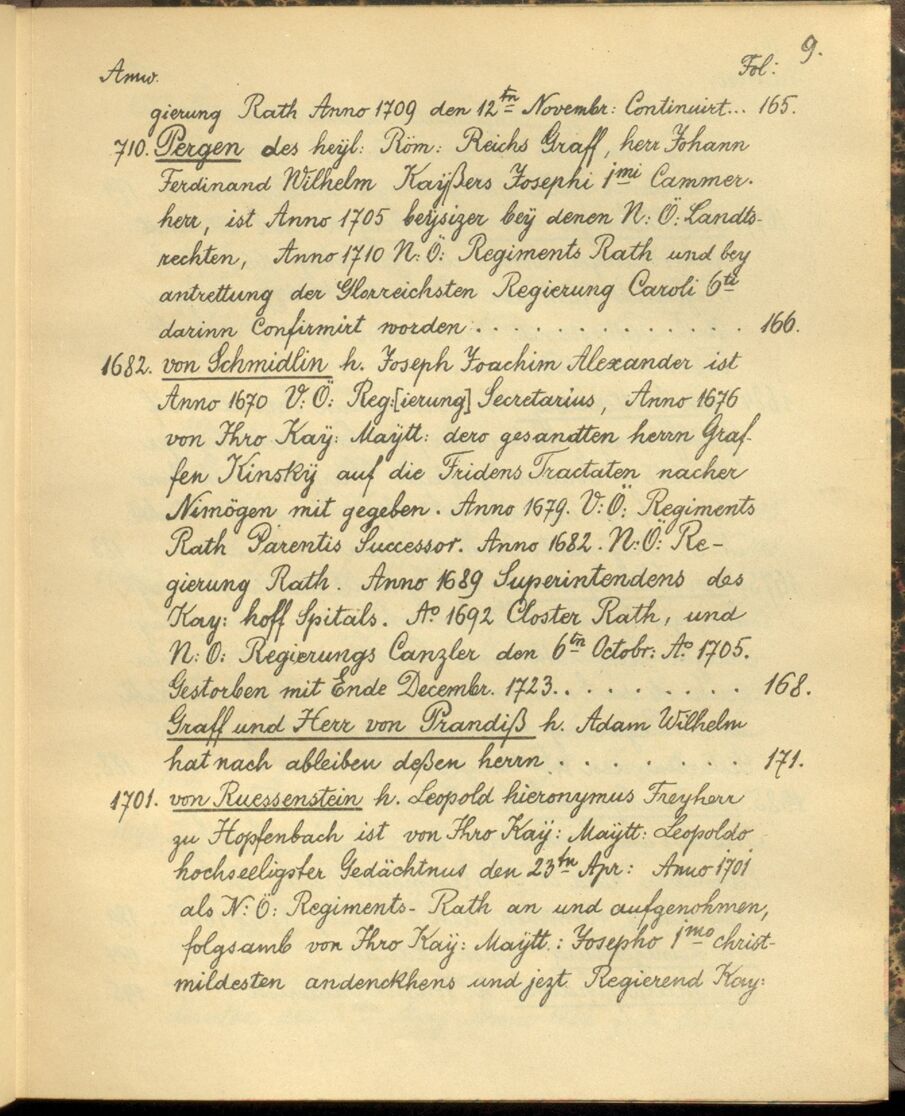 9.
Anno. Fol:
gierung Rath Anno 1709 den 12tn Novembr: Continuirt... 165.
710. Pergen des heyl: Röm: Reichs Graff, herr Johann
Ferdinand Wilhelm Kaÿßers Josephi jmi Cammer-
herr, ist Anno 1705 beÿsizer beÿ denen N: Ö: Landts-
rechten, Anno 1710 N: Ö: Regiments Rath und bey
antrettung der Glorreichsten Regierung Caroli 6ti
darinn Confirmirt worden . . . . . . . . . . . . . . 166.
1682. von Schmidlin h. Joseph Joachim Alexander ist
Anno 1670 V: Ö: Reg:[ierung] Secretarius, Anno 1676
von Ihro Kaÿ: Maÿtt: dero gesandten herrn Graf-
fen Kinskÿ auf die Fridens Tractaten nacher
Nimögen mit gegeben. Anno 1679. V: Ö: Regiments
Rath Parentis Successor. Anno 1682. N: Ö: Re-
gierung Rath. Anno 1689 Superintendens des
Kay: hoff Spitals. Ao. 1692 Closter Rath, und
N: O: Regierungs Canzler den 6tn Octobr: Ao. 1705.
Gestorben mit Ende Decembr. 1723. . . . . . . . . 168.
Graff und Herr von Prandiß h. Adam Wilhelm
hat nach ableiben deßen herrn . . . . . . . . 171.
1701. von Ruessenstein h. Leopold hieronymus Freyherr
zu Hopfenbach ist von Ihro Kaÿ: Maÿtt: Leopoldo
hochseeligster Gedächtnus den 23tn Apr: Anno 1701
als N: Ö: Regiments-Rath an und aufgenohmen,
folgsamb von Ihro Kaÿ: Maÿtt.: Josepho jmo christ-
mildesten andenckhens und jezt Regierend Kay: